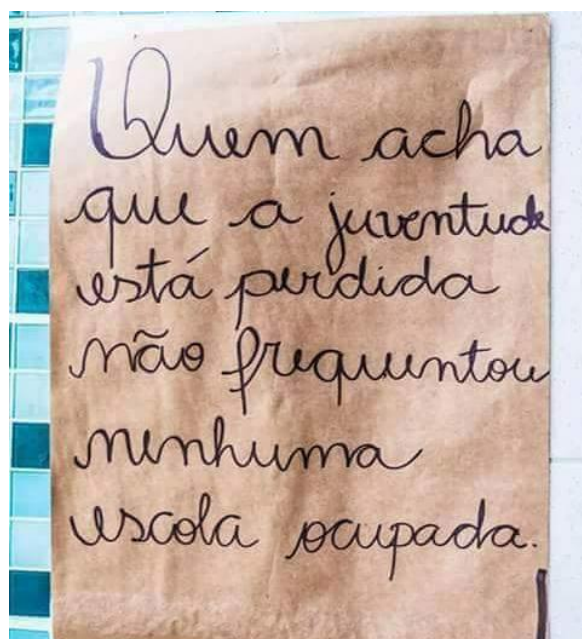 Quem acha
que a juventude
está perdida
não frequentou
nenhuma
escola ocupada.